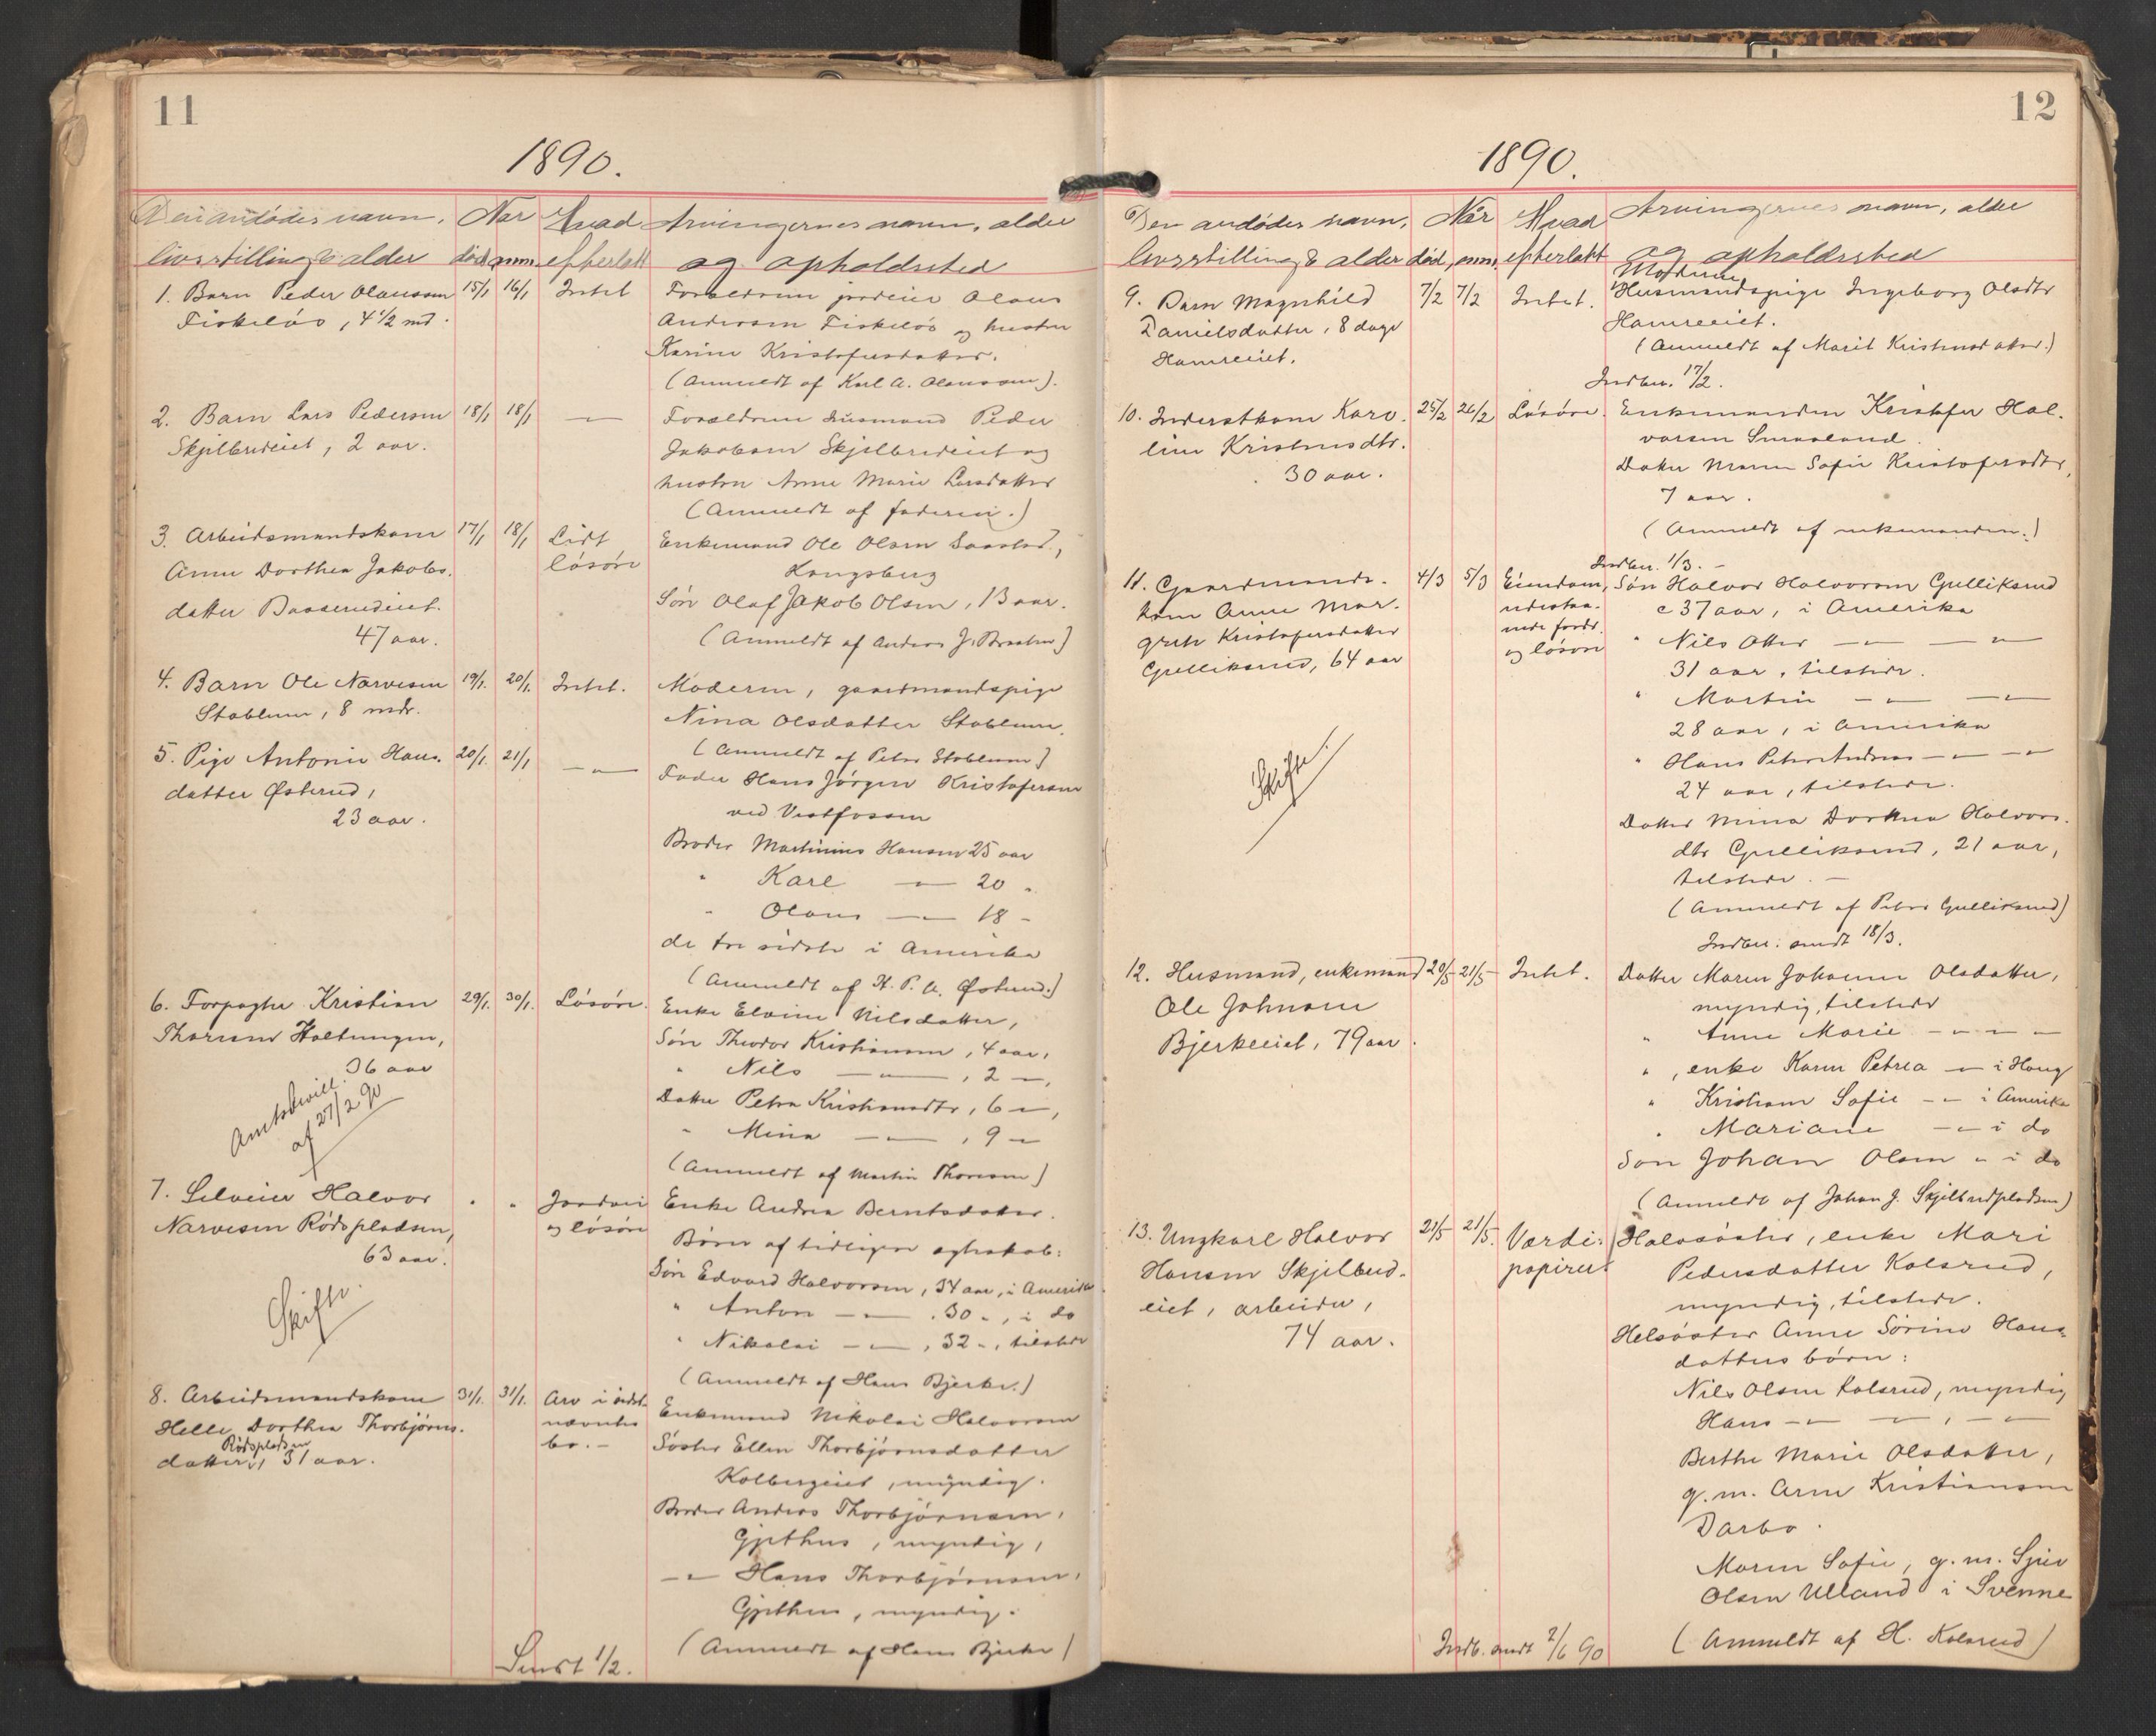 11
1890.
Den avdødes navn,
livsstilling & alder
Når
død, anm.
Hvad
efterlatt
Arvingernes navn, alder
og opholdssted
1. Barn Peder Olausson
Fiskeløs, 4 1/2 md.
15/1 16/1 Intet
Forældrene jordeier Olaus
Anderssen Fiskeløs og hustru
Karine Kristofersdatter.
(Anmeldt af Karl A. Olausson).
2. Barn Lars Pedersen
Skjilbredeiet, 2 aar.
18/1 18/1 —"—
Forældrene husmand Peder
Jakobsen Skjilbredeiet og
hustru Anne Marie Larsdatter
(Anmeldt af faderen.)
3. Arbeidsmandskone
Anne Dorthea Jakobs-
datter Baaserudeiet.
47 aar.
17/1 18/1 Lidt
løsøre
Enkemand Ole Olsen
Kongsberg
Søn Olaf Jakob Olsen, 13 aar.
(Anmeldt af Anders J. Braaten)
4. Barn Ole Narvesen
Stablum, 8 mdr.
19/1. 20/1. Intet.
Moderen, gaardmandspige
Nina Olsdatter Stablum.
(Anmeldt af Peter Stablum)
5. Pige Antonie Hans-
datter Østerud,
23 aar.
20/1. 21/1 —"—
Fader Hans Jørgen Kristofersen
ved Vestfossen
Broder Martinius Hansen 25 aar
" Karl —"— 20 "
" Olaus —"— 18 -
de tre sidste i Amerika
(Anmeldt af H. P. A. Østerud.)
6. Forpagter Kristian
Thoresen Holtungen,
36 aar
Amtsbevill.
af 27/2 90
29/1. 30/1. Løsøre.
Enke Elvine Nilsdatter,
Søn Theodor Kristiansen, 4 aar,
" Nils —"—, 2 —,
Datter Petra Kristiansdtr, 6 —,
" Mina —"—, 9 —
(Anmeldt af Martin Thoresen)
7. Selveier Halvor
Narvesen Rødspladsen,
63 aar.
Skifte.
" " Jordvei
og løsøre
Enke Andrea Berntsdatter.
Børn af tidligere egteskab:
Søn Edvard Halvorsen, 34 aar, i Amerika
" Anton —"—. 30 -, i do
" Nikolai —"—, 32 -, tilstede
(Anmeldt af Hans Bjerke.)
8. Arbeidsmandskone
Helle Dorthea Thorbjørns-
Rødspladsen
datter, 31 aar.
31/1. 31/1. Arv i sidst-
nævnte
bo. —
Enkemand Nikolai Halvorsen
Søster Ellen Thorbjørnsdatter
Kolbergeiet, myndig.
Broder Anders Thorbjørnsen,
Gjethus, myndig,
—"— Hans Thorbjørnsen,
Gjethus, myndig.
(Anmeldt af Hans Bjerke)
Sendt 1/2.
12
1890.
Den avdødes navn,
livsstilling & alder
Når
død, anm.
Hvad
efterlatt
Arvingernes navn, alder
og opholdssted
9. Barn Magnhild
Danielsdatter, 8 dage
Hamreeiet.
7/2 7/2 Intet.
Moderen
Husmandspige Ingeborg Olsdtr
Hamreeiet.
(Anmeldt af Marit Kristensdatter.)
Indber. 17/2.
10. Inderstkone Karo-
line Kristensdtr.
30 aar.
25/2 26/2 Løsøre.
Enkemanden Kristofer Hal-
vorsen Smaaland.
Datter Maren Sofie Kristofersdtr,
7 aar.
(Anmeldt af enkemanden.)
Indber. 1/3. -
11. Gaardmands-
kone Anne Mar-
grete Kristofersdatter
Gulliksrud, 64 aar
Skifte.
4/3 5/3 Eiendom,
udestaa-
ende fordr.
og løsøre
Søn Halvor Halvorsen Gulliksrud
c 37 aar, i Amerika
" Nils Otter —"— —"—
31 aar, tilstede.
" Martin —"— —"—
28 aar, i Amerika
" Hans Peter Andreas —"— —"—
24 aar, tilstede.
Datter Mina Dorthea Halvors-
dtr Gulliksrud, 21 aar,
tilstede. —
(Anmeldt af Peter Gulliksrud)
Indber. sendt 18/3.
12. Husmand, enkemand
Ole Johnsen
Bjerkeeiet, 79 aar.
20/5 21/5 Intet.
Datter Maren Johanne Olsdatter,
myndig, tilstede
" Anne Marie — " — " —
", enke Karen Petrea —"— i Houg
" Kristiane Sofie —"— i Amerika
" Mariane —"— i do
Søn Johan Olsen " i do
(Anmeldt af Johan J. Skjilbredpladsen)
13. Ungkarl Halvor
Hansen Skjilbred-
eiet, arbeider,
74 aar.
21/5 21/5. Værdi-
papirer.
Halvsøster, enke Mari
Pedersdatter Kolsrud,
myndig, tilstede.
Helsøster Anne Sørine Hans-
datters børn:
Nils Olsen Kolsrud, myndig
Hans —"— —"—, —"—
Berthe Marie Olsdatter,
g. m. Arne Kristiansen
Darbo.
Maren Sofie, g. m. Sjur
Olsen Ulland i Svenne
(Anmeldt af H. Kolsrud)
Indb. sendt 2/6 90